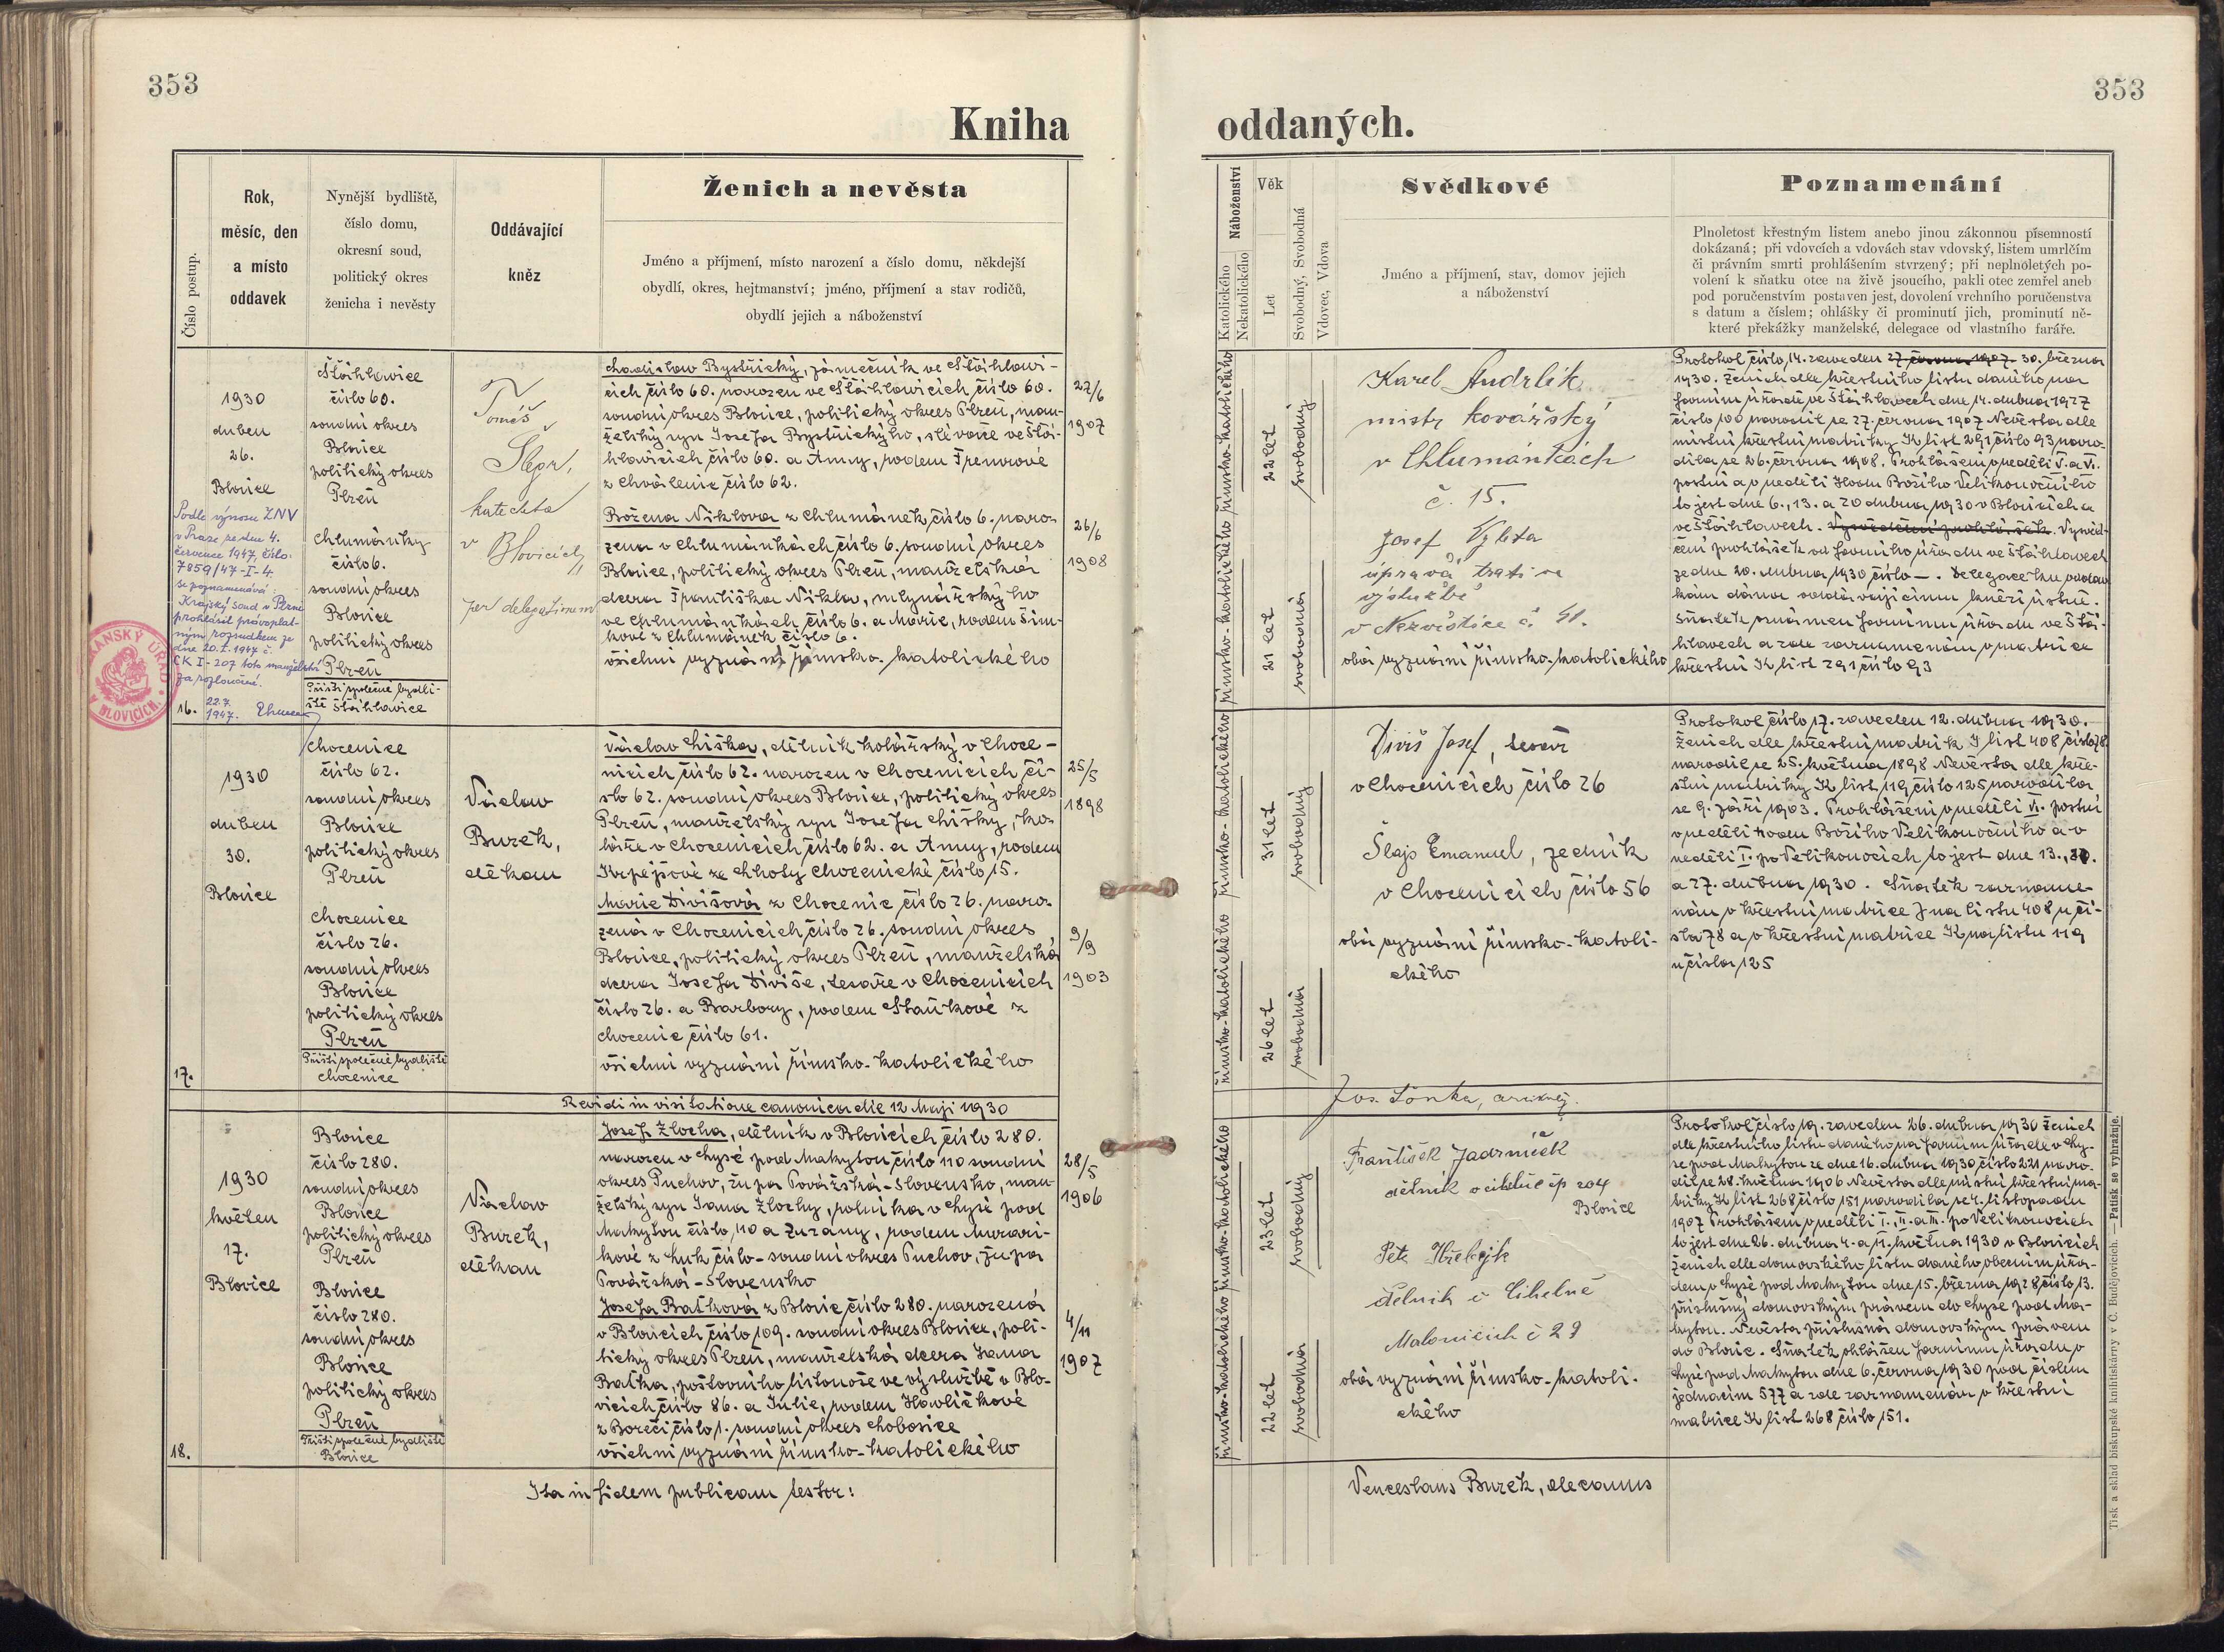 353
353
Kniha
oddaných.
Číslo postup.
Rok,
měsíc, den
a místo
oddavek
Nynější bydliště,
číslo domu,
okresní soud,
politický okres
ženicha i nevěsty
Oddávající
kněz
Ženich a nevěsta
Jméno a příjmení, místo narození a číslo domu, někdejší
obydlí, okres, hejtmanství; jméno, příjmení a stav rodičů,
obydlí jejich a náboženství
Náboženství
Katolického
Nekatolického
Věk
Let
Svobodný, Svobodná
Vdovec, Vdova
Svědkové
Jméno a příjmení, stav, domov jejich
a náboženství
Poznamenání
Plnoletost křestným listem anebo jinou zákonnou písemností
dokázaná; při vdovcích a vdovách stav vdovský, listem umrlčím
či právním smrti prohlášením stvrzený; při neplnoletých po-
volení k sňatku otce na živě jsoucího, pakli otec zemřel aneb
pod poručenstvím postaven jest, dovolení vrchního poručenstva
s datum a číslem; ohlášky či prominutí jich, prominutí ně-
které překážky manželské, delegace od vlastního faráře.
16.
1930
duben
26.
Blovice
Podle výnosu ZNV
v Praze ze dne 4.
července 1947, číslo:
7859/47-I-4.
se poznamenává:
Krajský soud v Plzni
prohlásil pravoplat-
ným rozsudkem ze
dne 20.I.1947 č.
CK I-207 toto manželství
za rozloučené.
22.7.
1947.
Šťáhlavice
číslo 60.
soudní okres
Blovice
politický okres
Plzeň
Chlumánky
číslo 6.
soudní okres
Blovice
politický okres
Plzeň
Příští společné bydli-
ště Šťáhlavice
Tomáš
Šlegr,
katecheta
v Blovicích
per delegationem
Ladislav Bystřický, zámečník ve Šťáhlavi-
cích číslo 60. narozen ve Šťáhlavicích číslo 60.
soudní okres Blovice, politický okres Plzeň, man-
želský syn Josefa Bystřického, slévače ve Šťá-
hlavicích číslo 60. a Anny, rodem
z Chválenic číslo 62.
Božena Niklova z Chlumánek, číslo 6. naro-
zena v Chlumánkách, číslo 6. soudní okres
Blovice, politický okres Plzeň, manželská
dcera Františka Nikla, mlynářského
ve Chlumánkách, číslo 6. a Marie, rodem Šim-
kové z Chlumánek číslo 6.
všichni vyznání římsko-katolického
27/6
1907
26/6
1908
římsko-katolického
římsko-katolického
22 let
21 let
svobodný
svobodná
Karel Andrlík
mistr kovářský
v Chlumánkách
č. 15.
Josef Vyleta
úprava trati ve
výslužbě
v Nezvěstice č 41.
obá vyznání římsko-katolického
Protokol číslo 14. zaveden 27. června 1907. 30. března
1930. Ženich dle křestního listu daného na
farním úřadě ve Šťáhlavech dne 14. dubna 1927
číslo 100 narodil se 27. června 1907 Nevěsta dle
místní křestní matriky K list 291 číslo 93 naro-
dila se 26. června 1908. Prohlášeni v neděli V. a VI.
postní a v neděli Hodu Božího Velikonočního
to jest dne 6., 13. a 20 dubna 1930 v Blovicích a
ve Šťáhlavech. Vysvědčení prohlášek. Vysvěd-
čení prohlášek od farního úřadu ve Šťáhlavech
ze dne 20. dubna 1930 číslo —. Delegace ku oddav-
kám dána oddávajícímu knězi ústně.
Sňatek oznámen farnímu úřadu ve Šťá-
hlavech a zde zaznamenán v matrice
křestní K list 291 číslo 93
17.
1930
duben
30.
Blovice
Chocenice
číslo 62.
soudní okres
Blovice
politický okres
Plzeň
Chocenice
číslo 26.
soudní okres
Blovice
politický okres
Plzeň
Příští společné bydliště
Chocenice
Václav
Burek,
děkan
Václav Liška, dělník kolářský v Choce-
nicích číslo 62. narozen v Chocenicích čí-
slo 62. soudní okres Blovice, politický okres
Plzeň, manželský syn Josefa Lišky, ko-
láře v Chocenicích číslo 62. a Anny, rodem
Krpejšové ze Lhoty Chocenické číslo 15.
Marie Divišová z Chocenic číslo 26. naro-
zená v Chocenicích číslo 26. soudní okres
Blovice, politický okres Plzeň, manželská
dcera Josefa Diviše, tesaře v Chocenicích
číslo 26. a Barbory, rodem Staňkové z
Chocenic číslo 61.
všichni vyznání římsko-katolického
25/5
1898
9/9
1903
římsko-katolického
římsko-katolického
31 let
26 let
svobodný
svobodná
Diviš Josef, tesař
v Chocenicích číslo 26
Šlajs Emanuel, zedník
v Chocenicích číslo 56
obá vyznání římsko-katoli-
ckého
Protokol číslo 17. zaveden 12. dubna 1930.
Ženich dle křestní matrik J list 408 číslo 78
narodil se 25. května 1898 Nevěsta dle kře-
stní matriky K list 119 číslo 125 narodila
se 9. září 1903. Prohlášeni v neděli VI. postní
v neděli hodu Božího Velikonočního a v
neděli I. po Velikonocích to jest dne 13., 20.
a 27. dubna 1930. Sňatek zazname-
nán v křestní matrice J na listu 408 u čí-
sla 78 a v křestní matrice K na listu 119
u čísla 125
Revidi in visitatione canonica die 12 Maji 1930
Jos. Lonka,
18.
1930
květen
17.
Blovice
Blovice
číslo 280.
soudní okres
Blovice
politický okres
Plzeň
Blovice
číslo 280.
soudní okres
Blovice
politický okres
Plzeň
Příští společné bydliště
Blovice
Václav
Burek,
děkan
Josef Žlocha, dělník v Blovicích číslo 280.
narozen v Lysé pod Makytou číslo 110 soudní
okres Puchov, župa Považská-Slovensko, man-
želský syn Jana Žlochy, rolníka v Lysé pod
Makytou číslo 110 a Zuzany, rodem Moravčí-
kové z Luk číslo - soudní okres Puchov, župa
Považská-Slovensko
Josefa Baťková z Blovic číslo 280. narozená
v Blovicích číslo 109. soudní okres Blovice, poli-
tický okres Plzeň, manželská dcera Jana
Baťka, poštovního listonoše ve výslužbě v Blo-
vicích číslo 86. a Julie, rodem Havlíčkové
z Borečí číslo 1. soudní okres Lhobosice
všichni vyznání římsko-katolického
28/5
1906
4/11
1907
římsko-katolického
římsko-katolického
23 let
22 let
svobodný
svobodná
František Jadrníček
dělník v cihelně čp 204
Blovice
Petr Hřebejk
dělník v Cihelně
Malonicích č 29
obá vyznání římsko-katoli-
ckého
Protokol číslo 19. zaveden 26. dubna 1930 Ženich
dle křestního listu daného na farním úřadě v Ly-
se pod Makytou ze dne 16. dubna 1930 číslo 221 naro-
dil se 28. května 1906 Nevěsta dle místní křestní ma-
triky K list 268 číslo 151 narodila se 4. listopadu
1907 Prohlášeni v neděli I. II. a III. po Velikonocích
to jest dne 26. dubna 4. a 11. května 1930 v Blovicích
Ženich dle domovského listu daného obecním úřa-
dem v Lysé pod Makytou dne 15. března 1928 číslo 13.
příslušný domovským právem do Lyse pod Ma-
kytou. Nevěsta příslušná domovským právem
do Blovic. Sňatek ohlášen farnímu úřadu v
Lysé pod Makytou dne 6. června 1930 pod číslem
jednacím 577 a zde zaznamenán v křestní
matrice K list 268 číslo 151.
Ita in fidem publicam testor:
Venceslaus Burek, decanus
Tisk a sklad biskupské knihtiskárny v Č. Budějovicích. Patisk se vyhražuje.